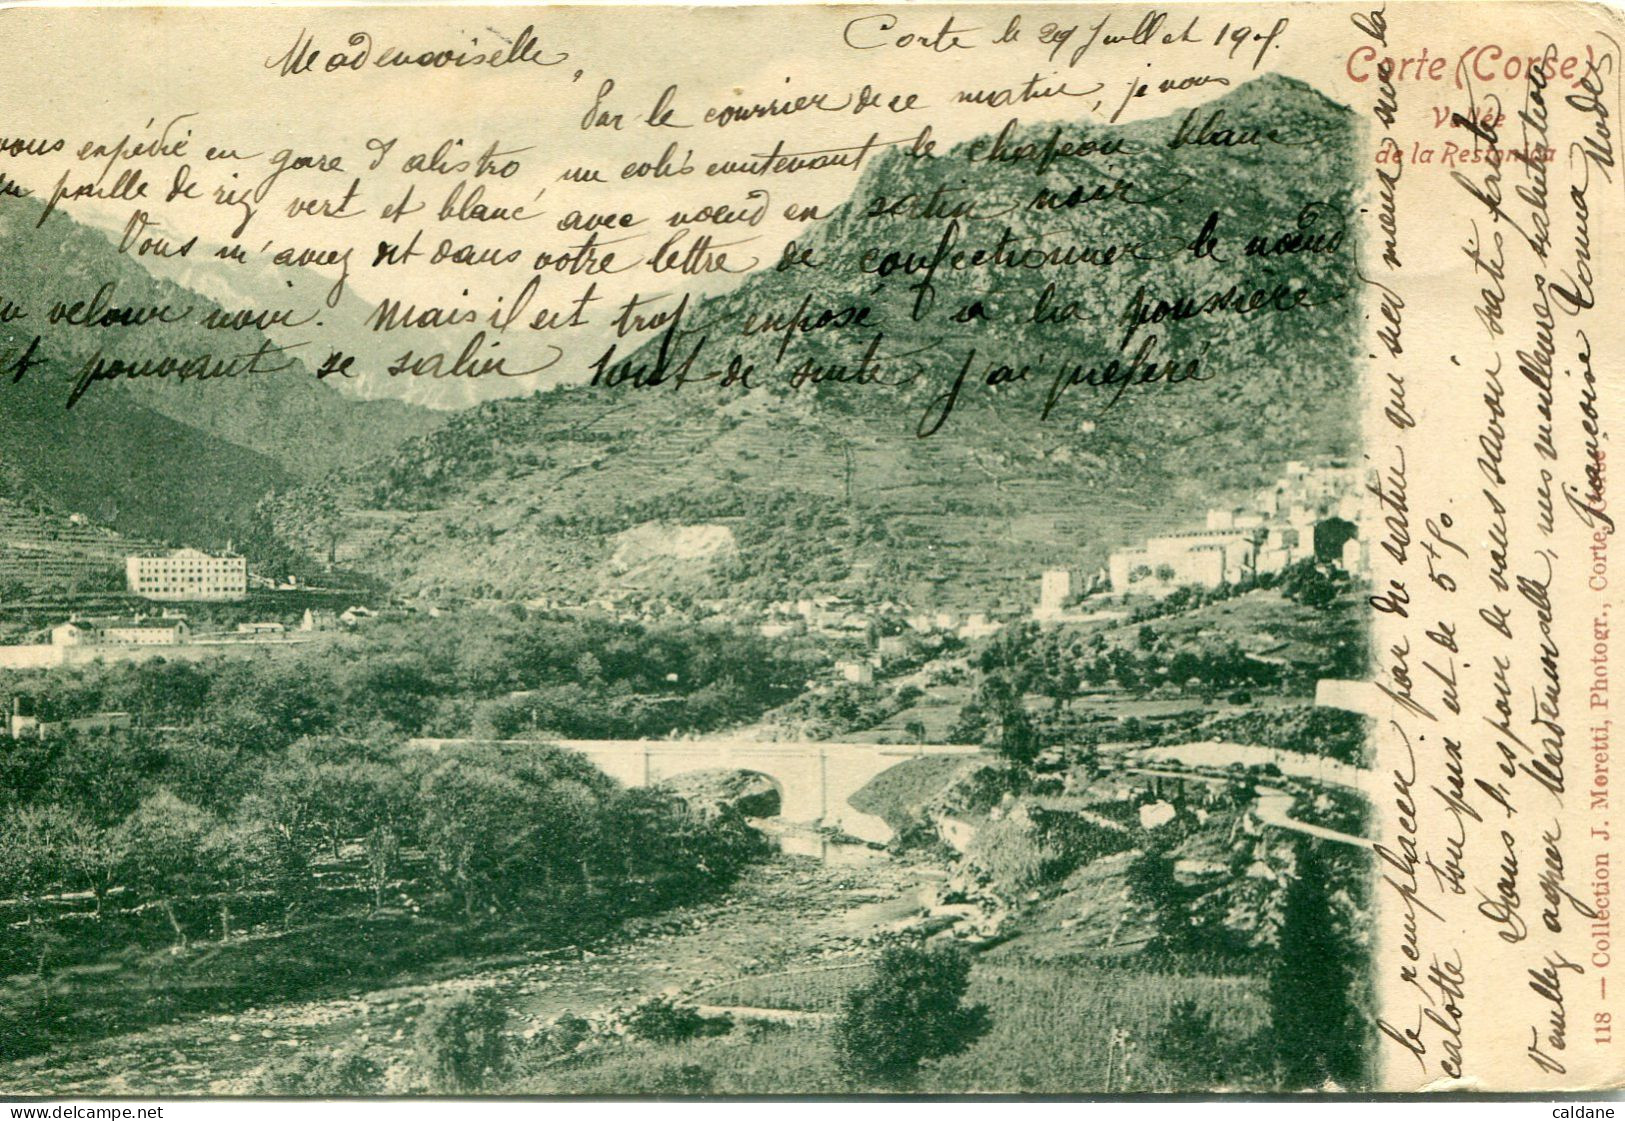 Corte le 29 Juillet 190
Mademoiselle,
Par le courrier de ce matin, je vous
vous expédie en gare d'alistro un colis contenant le chapeau blanc
en paille de riz vert et blanc avec nœud en satin noir.
Vous m'avez dit dans votre lettre de confectionner le nœud
en velour noir. Mais il est trop exposé à la poussière
et pouvant se salir tout de suite j'ai préféré
le remplacer par de satin qui sied mieux sur la
calotte. Son prix est de 5f50.
Dans l'espoir de vous savoir satisfaite
Veuillez agréer Mademoiselle, mes meilleures salutations
Françoise Tomma Modes
Corte (Corse)
Vallée
de la Restonica
118 — Collection J. Moretti, Photogr., Corte, Corse
caldane